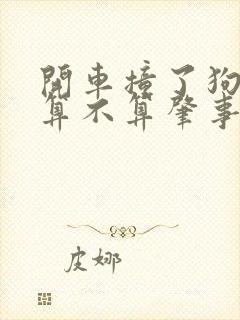 開車撞了狗
算不算肇事
皮娜